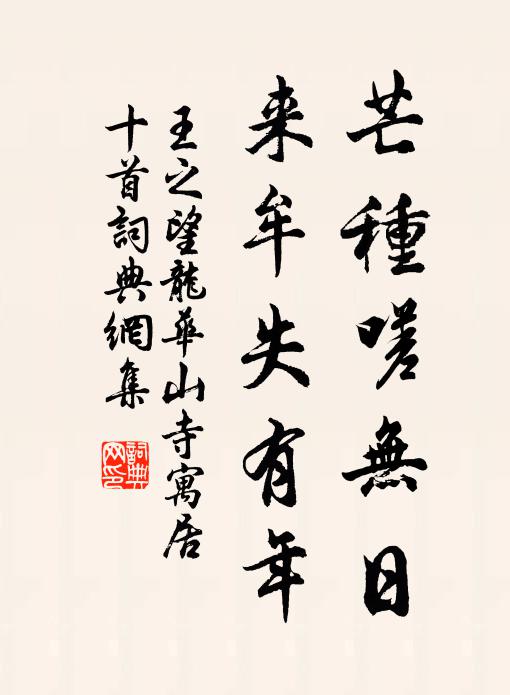 芒種嗟無日
来牟失有年
王之望龍華山寺寓居
十首詞典網集
詞典
网印